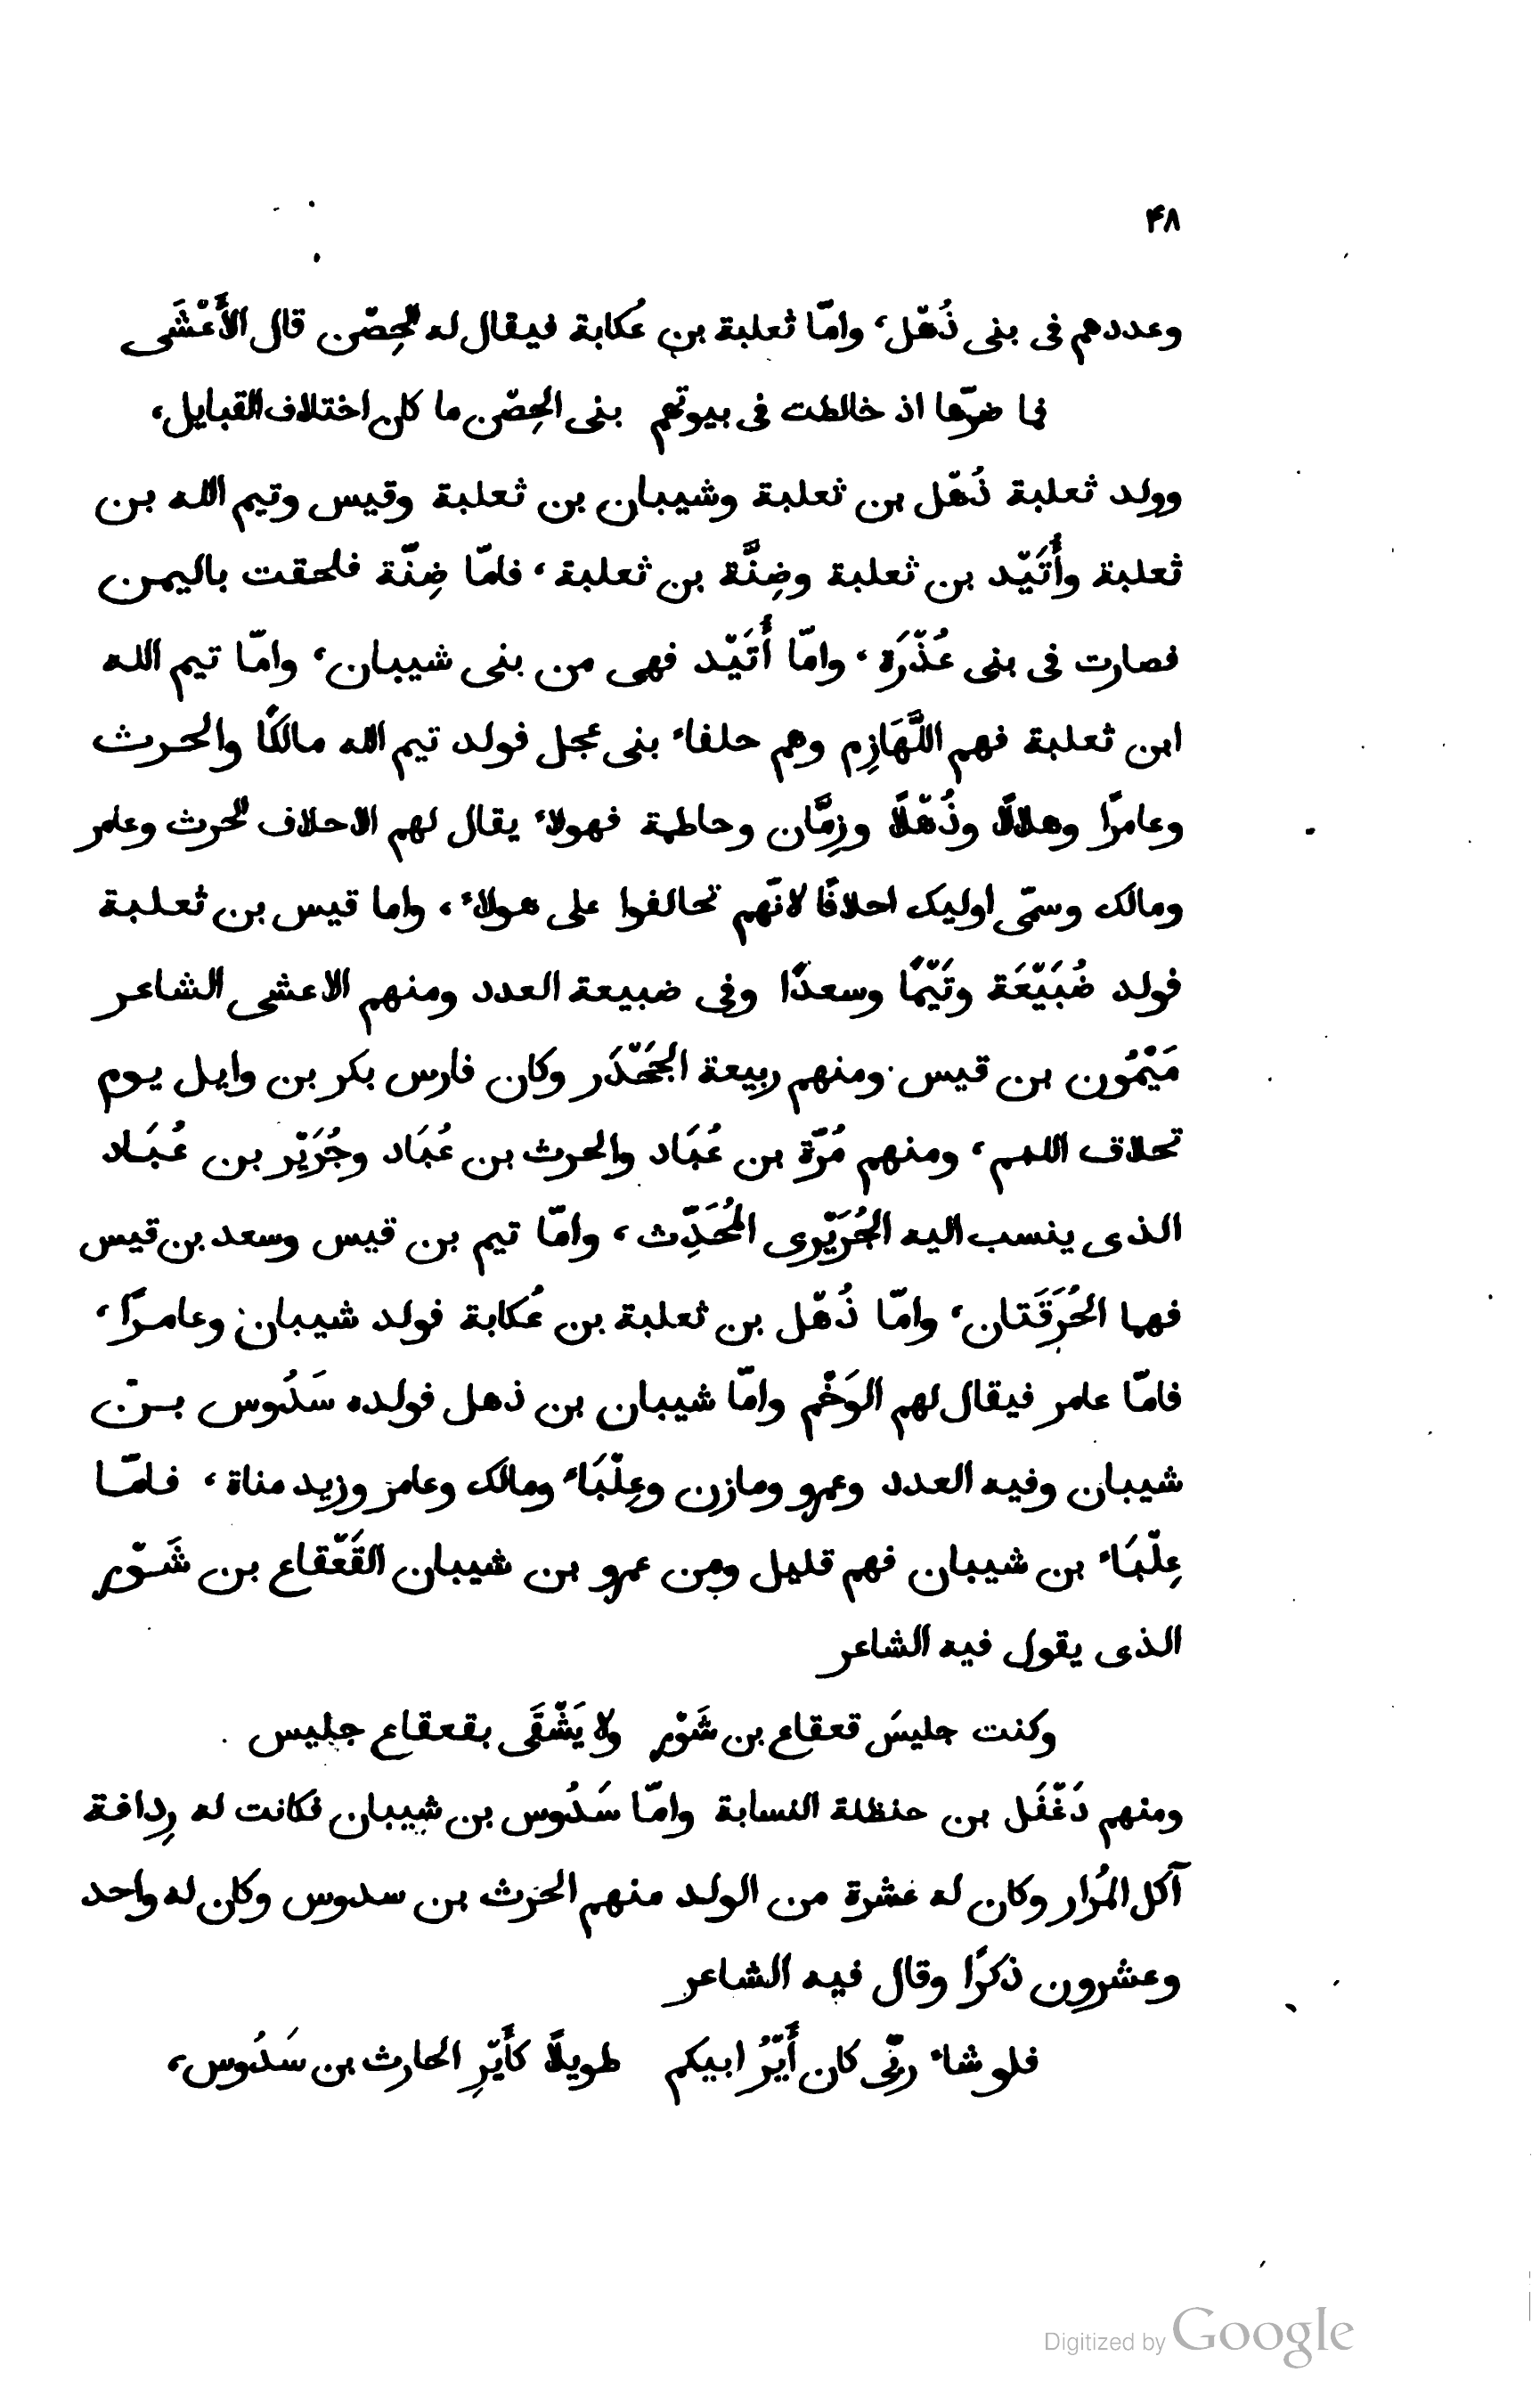 ۴۸
وعددهم فى بنى ذُهْل، وامّا ثعلبة بن عُكابة فيقال له الحِصْن قال الأَعْشَى
فما ضرّها اذ خالطت فى بيوتهم بنى الحِصْن ما كان اختلاف القبايل،
وولد ثعلبة ذُهْل بن ثعلبة وشيبان بن ثعلبة وقيس وتيم الله بن
ثعلبة وأُتَيْد بن ثعلبة وضِنَّة بن ثعلبة، فامّا ضِنّة فلحقت باليمن
فصارت فى بنى عُذْرَة، وامّا أُتَيْد فهى من بنى شيبان، وامّا تيم الله
ابن ثعلبة فهم اللَّهَازِم وهم حلفاء بنى عجل فولد تيم الله مالكًا والحرث
وعامرًا وهلالًا وذُهْلًا وزِمَّان وحاطمة فهولاء يقال لهم الاحلاف الحرث وعامر
ومالك وسمّى اوليك احلافًا لانّهم تحالفوا على هولاء، واما قيس بن ثعلبة
فولد ضُبَيْعَة وتَيْمًا وسعدًا وفى ضبيعة العدد ومنهم الاعشى الشاعر
مَيْمُون بن قيس ومنهم ربيعة الجَحْدَر وكان فارس بكر بن وايل يوم
تحلاق اللمم، ومنهم مُرّة بن عُبَاد والحرث بن عُبَاد وجُرَيْر بن عُبَاد
الذى ينسب اليه الجُرَيْرى المُحَدِّث، وامّا تيم بن قيس وسعد بن قيس
فهما الحُرَقَتان، وامّا ذُهْل بن ثعلبة بن عُكابة فولد شيبان وعامرًا،
فامّا عامر فيقال لهم الوَخْم وامّا شيبان بن ذهل فولده سَدُوس بن
شيبان وفيه العدد وعمرو ومازن وعِلْبَاء ومالك وعامر وزيد مناة، فامّا
عِلْبَاء بن شيبان فهم قليل ومن عمرو بن شيبان القَعْقاع بن شَوْر
الذى يقول فيه الشاعر
وكنت جليسَ قعقاع بن شَوْر ولا يَشْقَى بقعقاع جليس
ومنهم دَغْفَل بن حنظلة النسابة وامّا سَدُوس بن شيبان فكانت له رِدافة
آكل المُرار وكان له عشرة من الولد منهم الحرث بن سدوس وكان له واحد
وعشرون ذكرًا وقال فيه الشاعر
فلو شاء ربّى كان أَيْرُ ابيكم طويلًا كأَيْرِ الحارث بن سَدُوس،
Digitized by Google